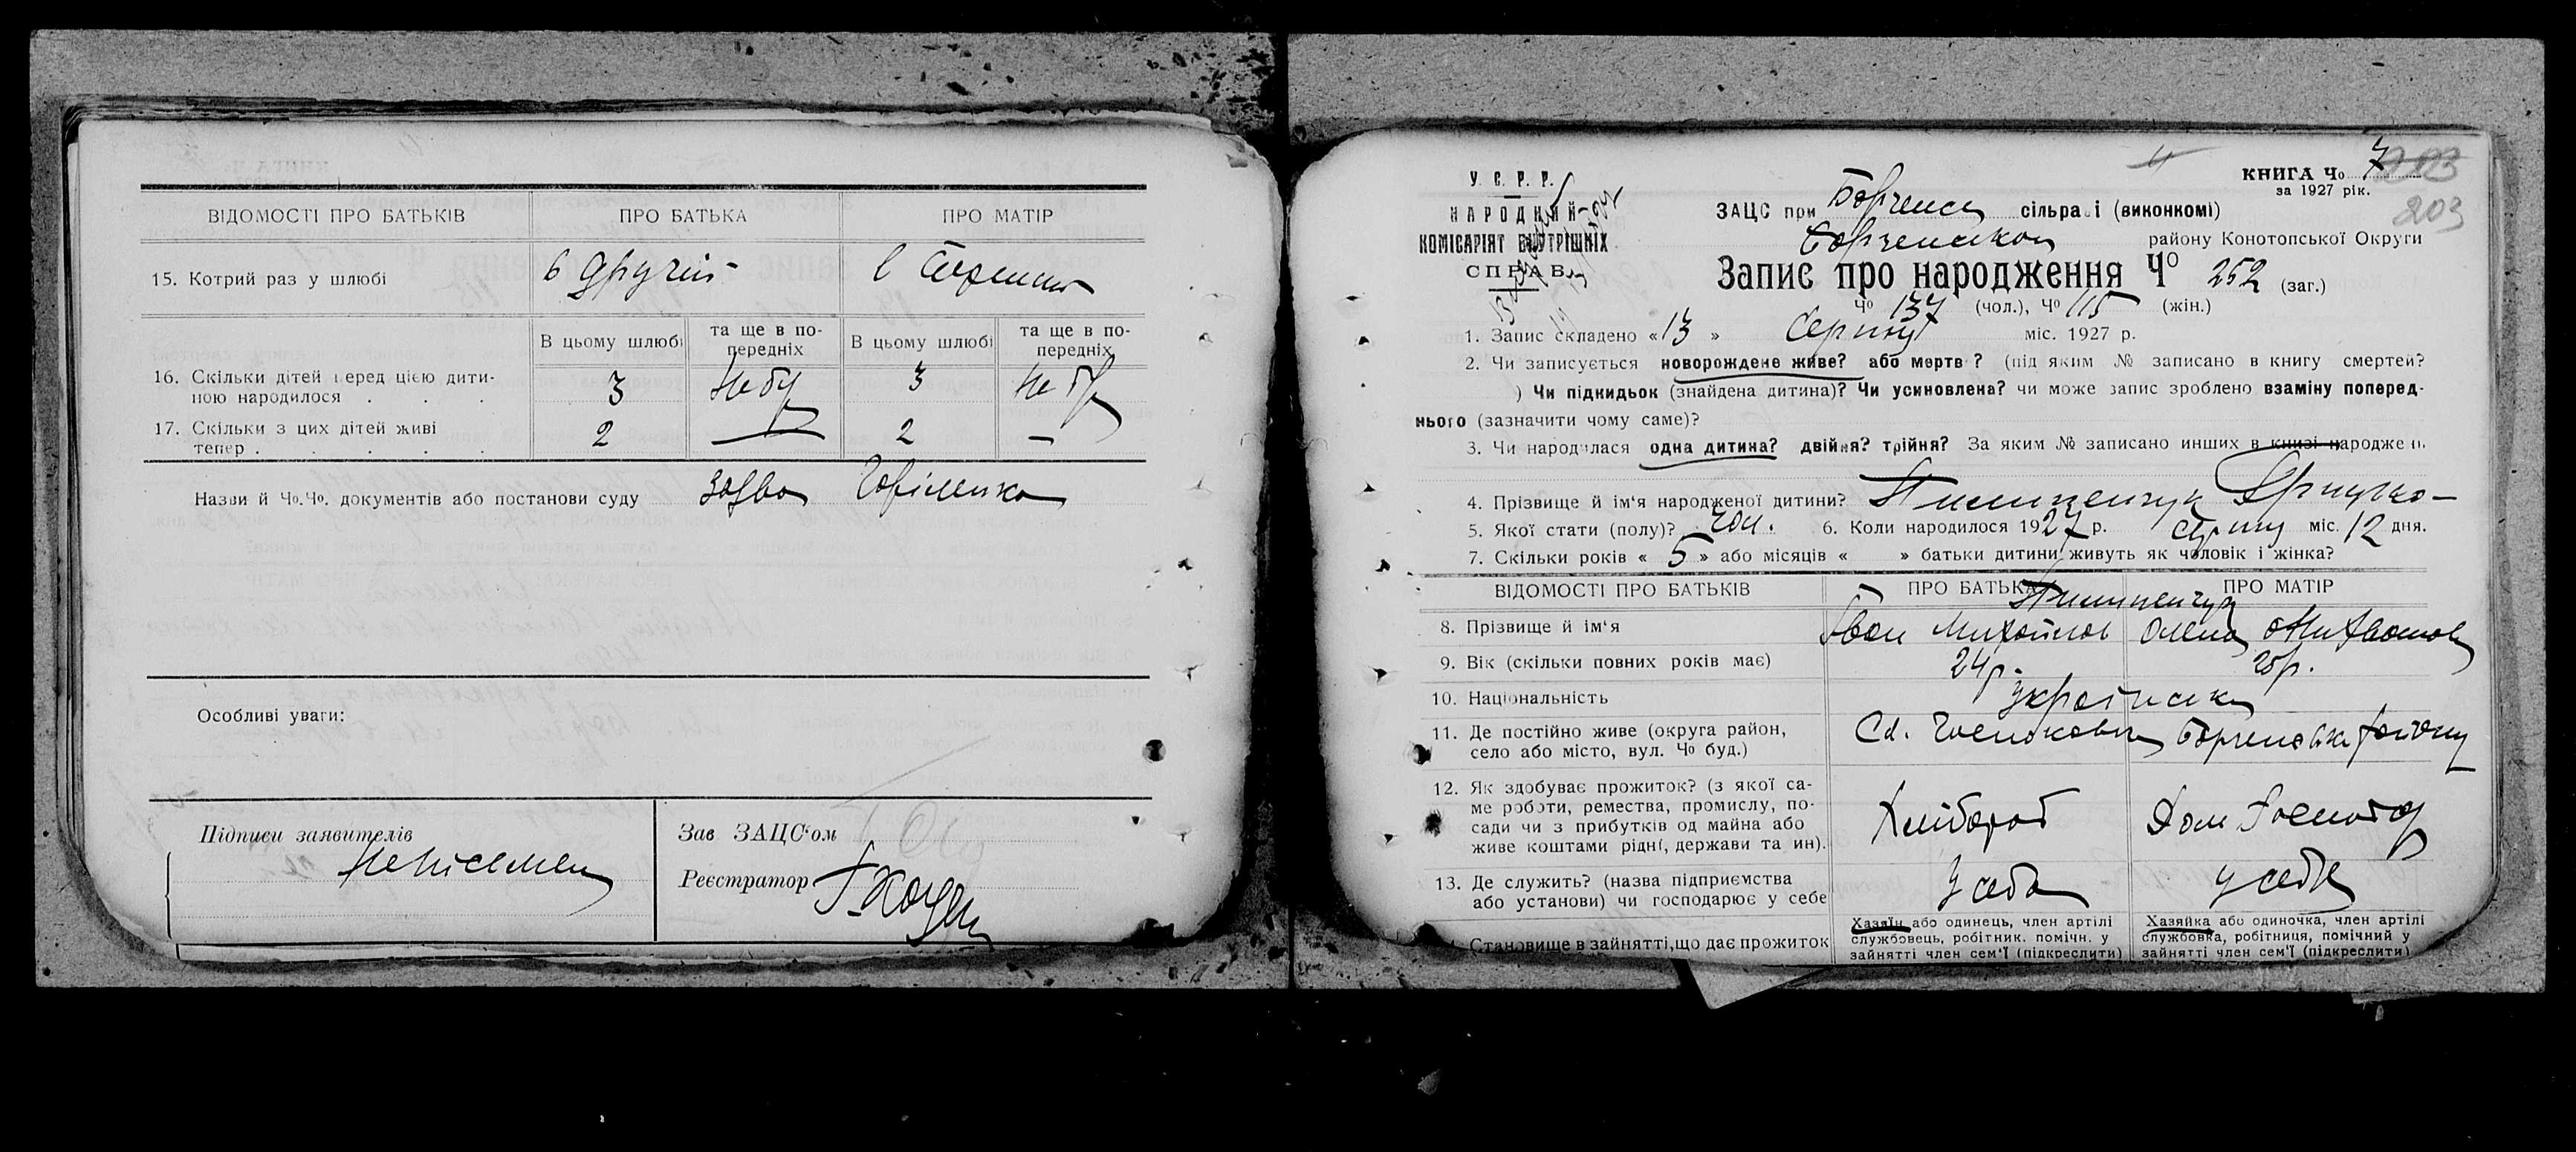 ВІДОМОСТІ ПРО БАТЬКІВ ПРО БАТЬКА ПРО МАТІР
15. Котрий раз у шлюбі в другий
В цьому шлюбі та ще в по-передніх В цьому шлюбі та ще в по-передніх
16. Скільки дітей перед цією дити-
ною народилося . . . 3 Не бу 3 Не бу
17. Скільки з цих дітей живі
тепер . . . . . 2 — 2 —
Назви й Чо.Чо. документів або постанови суду
Особливі уваги:
Підписи заявителів
Неписьмен
Зав ЗАЦС'ом
Реєстратор
У. С. Р. Р.
НАРОДНИЙ
КОМІСАРІЯТ ВНУТРІШНІХ
СПРАВ.
КНИГА Чо 7
за 1927 рік.
203
ЗАЦС при сільраді (виконкомі)
району Конотопської Округи
Запис про народження Чо 252 (заг.)
Чо 137 (чол.), Чо 115 (жін.)
1. Запис складено «13» Серпня міс. 1927 р.
2. Чи записується новорождене живе? або мертве? (під яким № записано в книгу смертей?
) Чи підкидьок (знайдена дитина)? Чи усиновлена? чи може запис зроблено взаміну поперед-
нього (зазначити чому саме)?
3. Чи народилася одна дитина? двійня? трійня? За яким № записано инших в книзі народжен.
4. Прізвище й ім'я народженої дитини?
5. Якої стати (полу)? Чол. 6. Коли народилося 1927 р. Серпня міс. 12 дня.
7. Скільки років « 5 » або місяців « » батьки дитини живуть як чоловік і жінка?
ВІДОМОСТІ ПРО БАТЬКІВ ПРО БАТЬКА ПРО МАТІР
8. Прізвище й ім'я Іван Михайлов Олена
9. Вік (скільки повних років має) 24 р.
10. Національність Українська
11. Де постійно живе (округа район,
село або місто, вул. Чо буд.)
12. Як здобуває прожиток? (з якої са-
ме роботи, ремества, промислу, по-
сади чи з прибутків од майна або
живе коштами рідні, держави та ин). Хлібороб
13. Де служить? (назва підприємства
або установи) чи господарює у себе У себе у себе
Становище в зайнятті, що дає прожиток
Хазяїн або одинець, член артілі
службовець, робітник. помічн. у
зайнятті член сем'ї (підкреслити)
Хазяйка або одиночка, член артілі
службовка, робітниця, помічний у
зайнятті член сем'ї (підкреслити)